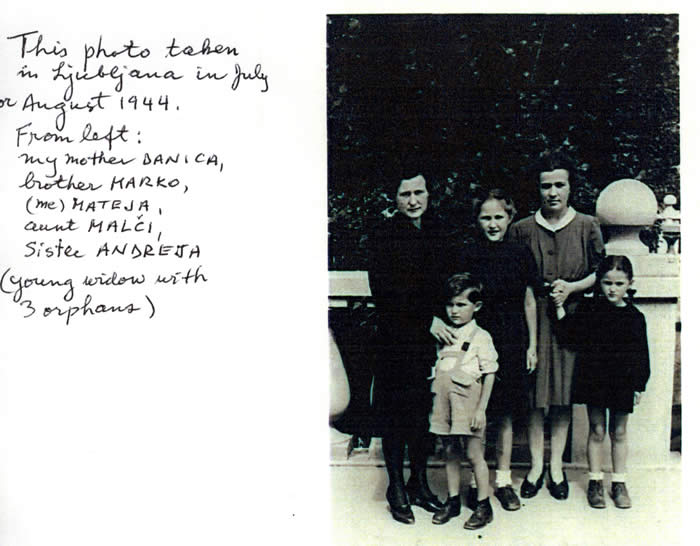 This photo taken
in Ljubljana in July
or August 1944.
From left:
my mother DANICA,
brother MARKO,
(me) MATEJA,
aunt MALČI,
Sister ANDREJA
(young widow with
3 orphans)